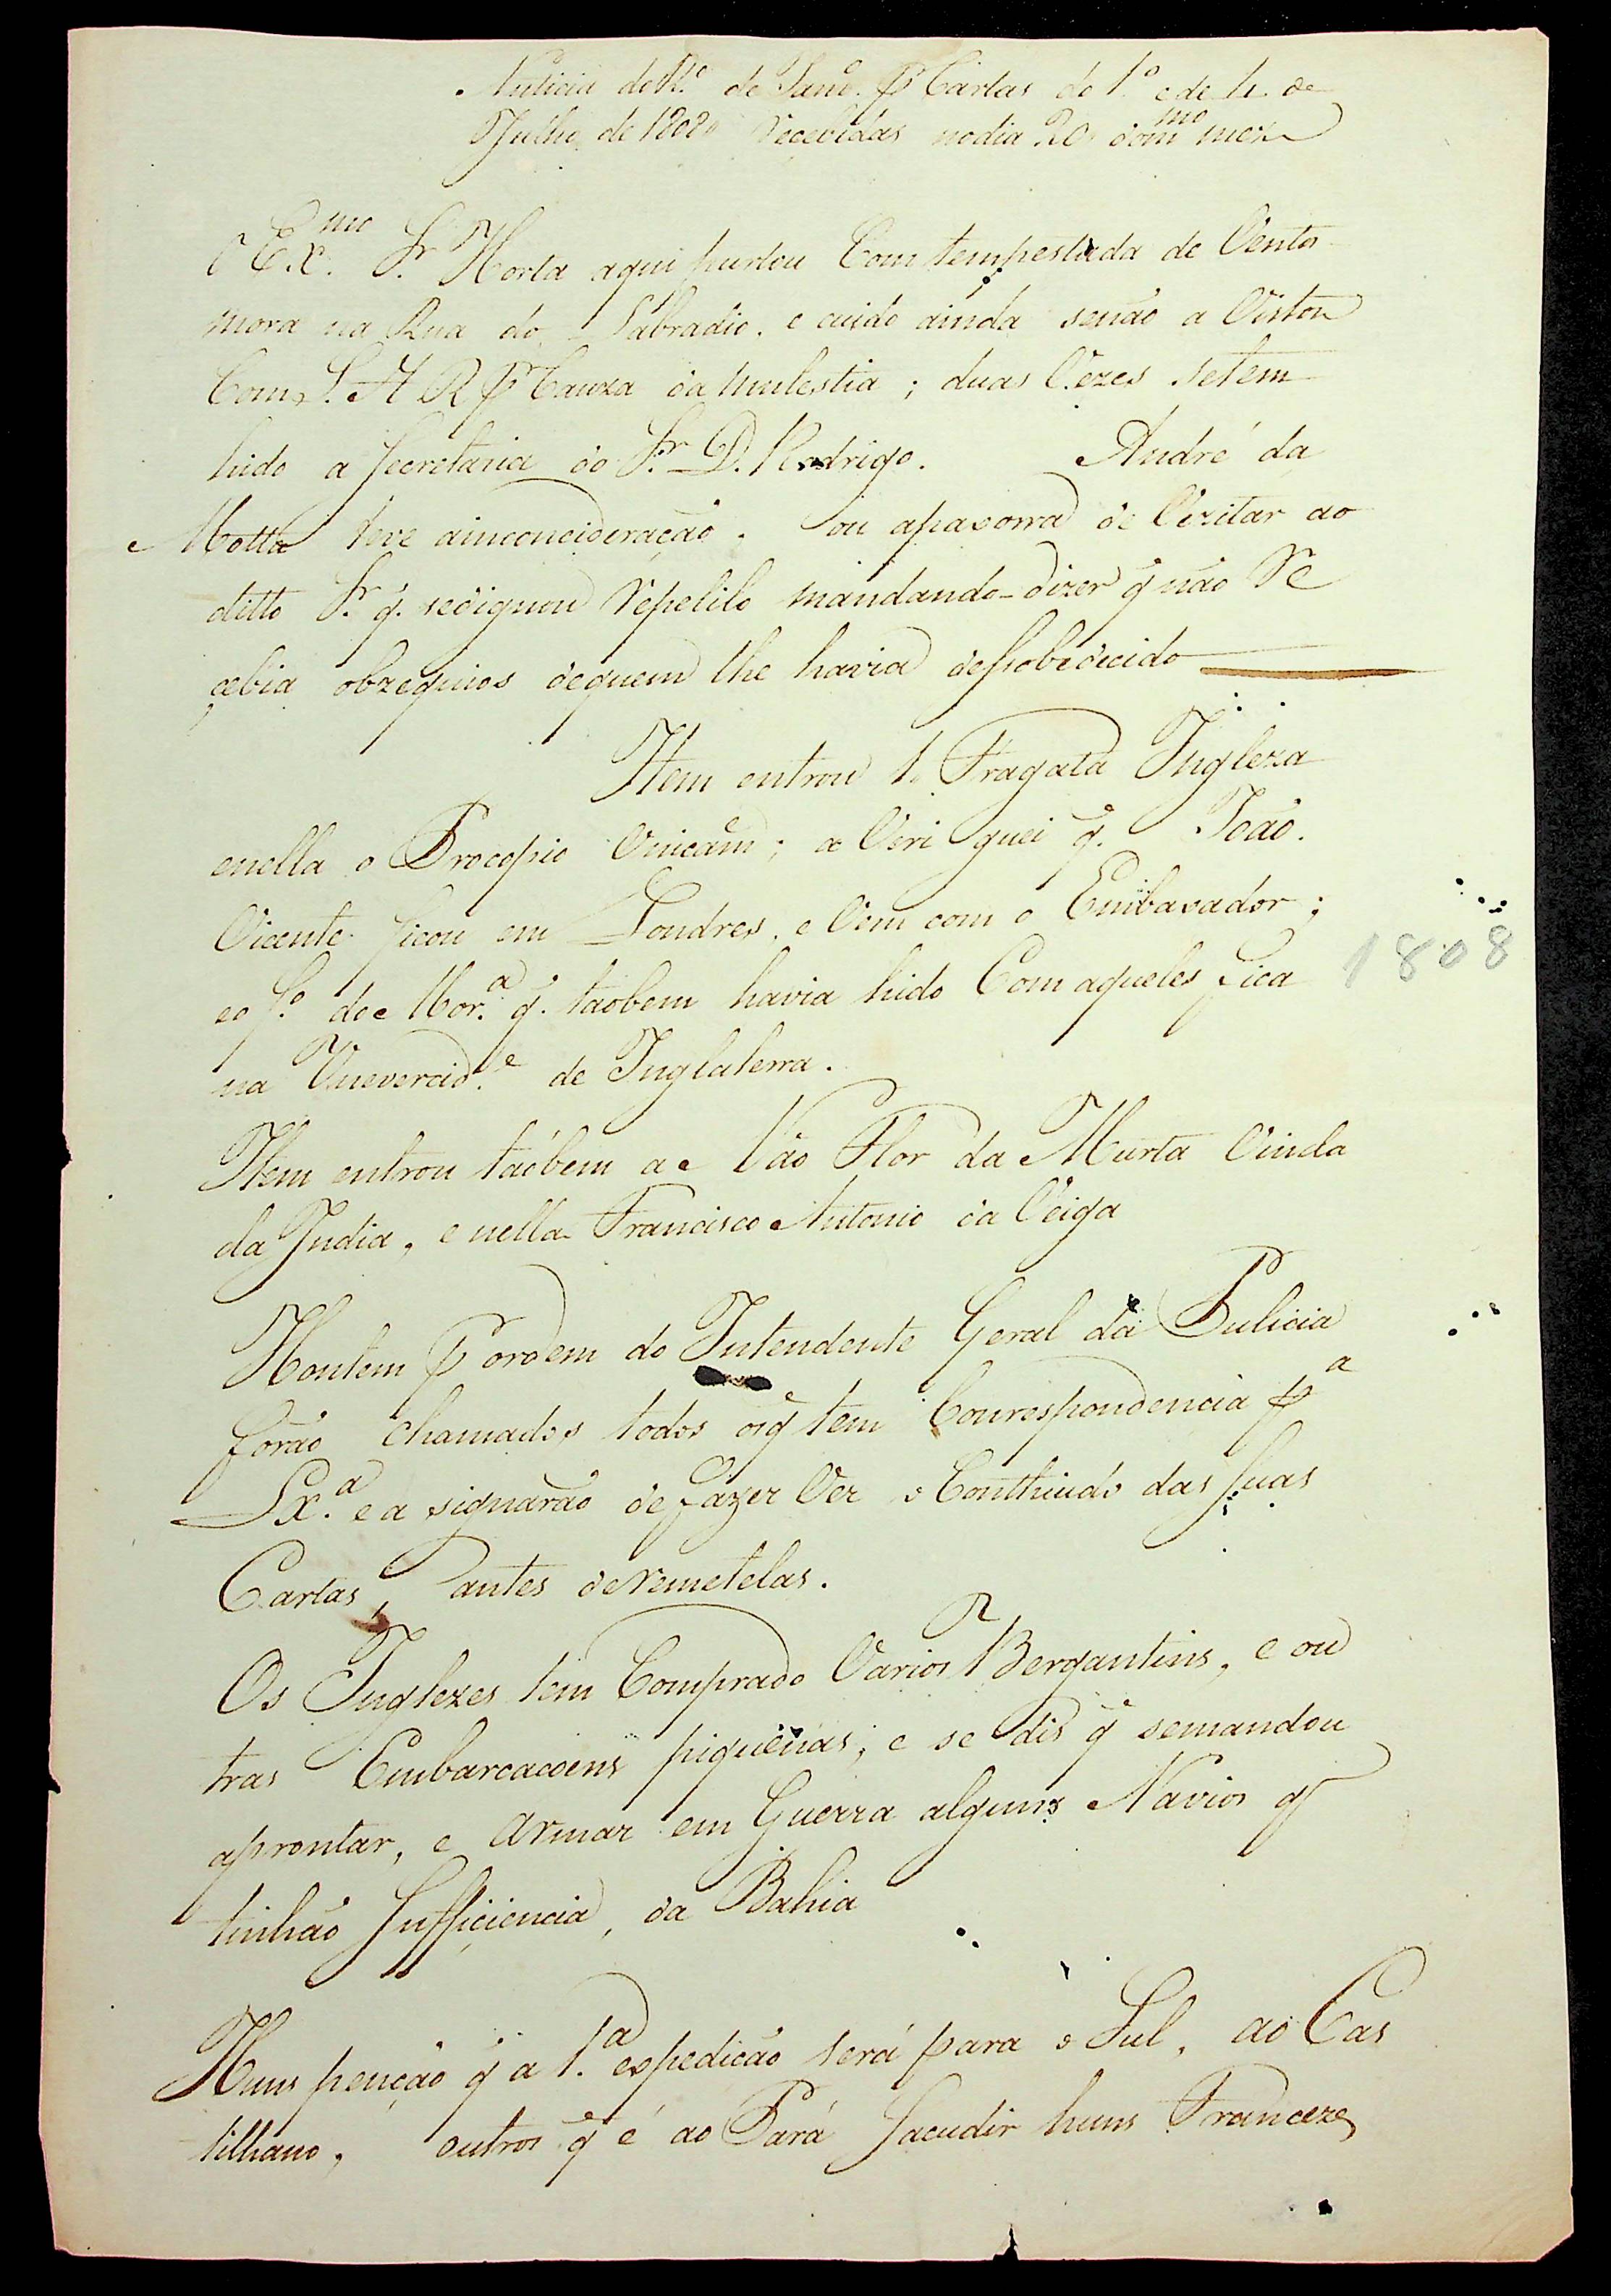 Nuticia do R.º de Janr.º p Cartas do 1.º e de 4 de
Julho de 1808 recevidas no dia 20 do m.mo mez
O Ex.mo Sr. Horta aqui purtou Com tempestada de Ventos
mora na Rua do Labradio. e cuido ainda senão a Vistou
Com S. A R p Cauza da mulestia; duas Vezes setem
hido a Secretaria do Sr. D. Rodrigo. André da
Motta teve ainconcideração. ou apaxorra de Vizitar ao
ditto Sr. q̃. sedignou repelilo mandando-dizer q̃ não Re
cebia obzequios dequem lhe havia desobedecido
Item entrou 1. Fragata Ingleza
enella o Procopio Vnicam.e; a Veri guei q̃. João.
Vicente ficou em Londres, e Vem com o Embaxador;
eo f.º do Mor.ª q̃. taobem havia hido Com aqueles fica
na Vnevercid.e de Inglaterra.
Item entrou taobem a Náo Flor da Murta Vinda
da India, e nella Francisco Antonio da Veiga
Hontem p ordem do Intendente Geral da Pulicia
forão chamados todos osq̃ tem Courespondencia p.ª
Lx.ª e a signarão defazer Ver o Conthiudo das Suas
Cartas, antes deremetelas.
Os Inglezes tem Comprado Varios Bergantins, e ou
tras Embarcacoens piquenas; e se dis q̃ semandou
aprontar, e armar em Guerra alguns Navios q̃
tinhão Sufficiencia, da Bahia
Huns penção q̃ a 1.ª expedicão será para o Sul, ao Cas
tilhano, outros q̃ é ao Pará Sacudir huns Francezes
1808